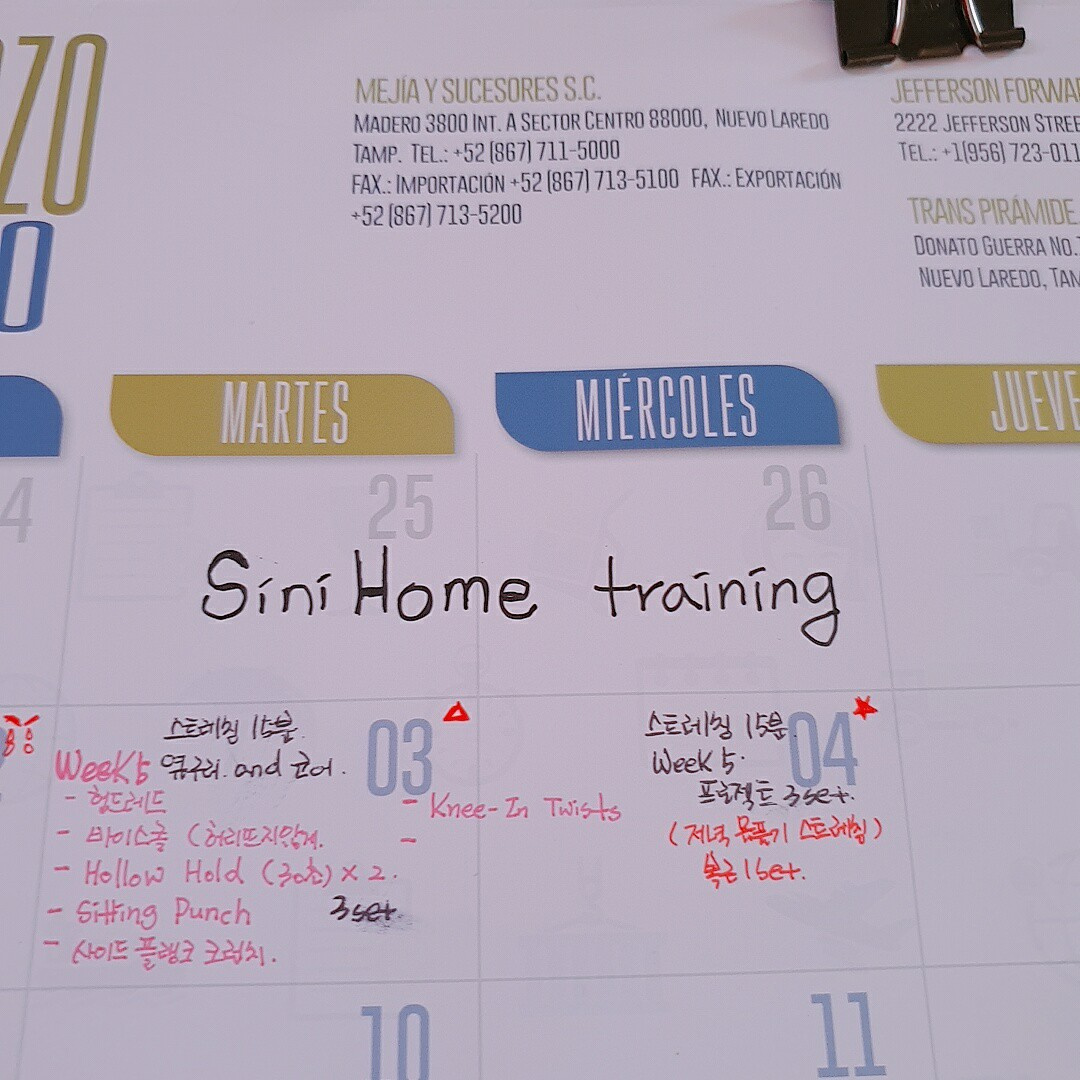 ZO
0
MEJÍA Y SUCESORES S.C.
MADERO 3800 INT. A SECTOR CENTRO 88000, NUEVO LAREDO
TAMP. TEL.: +52 (867) 711-5000
FAX.: IMPORTACIÓN +52 (867) 713-5100 FAX.: EXPORTACIÓN
+52 (867) 713-5200
JEFFERSON FORWA
2222 JEFFERSON STREE
TEL.: +1(956) 723-011
TRANS PIRÁMIDE
DONATO GUERRA NO.
NUEVO LAREDO, TAM
MARTES
MIÉRCOLES
JUEVE
4
25
26
Sini Home training
03
스트레칭 15분.
Week 5 옆구리. and 코어.
- 힙드레드
- 바이스클 (허리뜨지않게.
- Hollow Hold (30초) × 2.
- Sitting Punch 3set.
- 사이드 플랭크 크런치.
- Knee-In Twists
-
04
스트레칭 15분.
Week 5.
프로젝트 3set.
(저녁 몸풀기 스트레칭)
복근 1set.
10
11